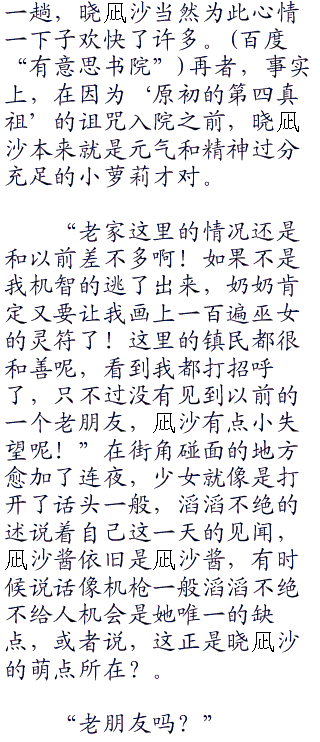 一趟，晓凪沙当然为此心情
一下子欢快了许多。(百度
“有意思书院”)再者，事实
上，在因为‘原初的第四真
祖’的诅咒入院之前，晓凪
沙本来就是元气和精神过分
充足的小萝莉才对。
“老家这里的情况还是
和以前差不多啊！如果不是
我机智的逃了出来，奶奶肯
定又要让我画上一百遍巫女
的灵符了！这里的镇民都很
和善呢，看到我都打招呼
了，只不过没有见到以前的
一个老朋友，凪沙有点小失
望呢！”在街角碰面的地方
愈加了连夜，少女就像是打
开了话头一般，滔滔不绝的
述说着自己这一天的见闻，
凪沙酱依旧是凪沙酱，有时
候说话像机枪一般滔滔不绝
不给人机会是她唯一的缺
点，或者说，这正是晓凪沙
的萌点所在？。
“老朋友吗？”